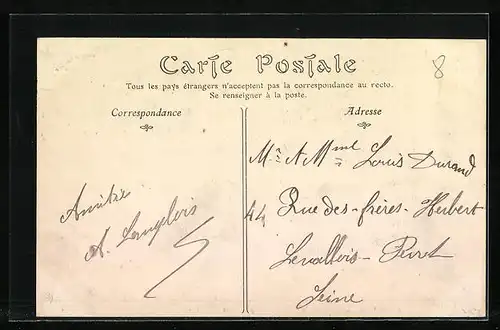 Carte Postale
Tous les pays étrangers n'acceptent pas la correspondance au recto.
Se renseigner à la poste.
Correspondance
Adresse
8
Amitié
A. Langlois
Mr & Mme Louis Durand
44 Rue des frères Herbert
Levallois-Perret
Seine